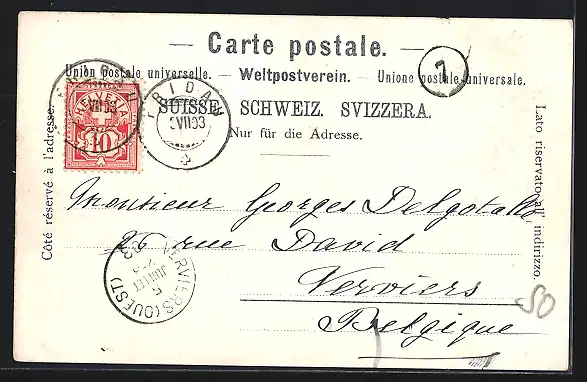 — Carte postale. —
Union postale universelle. — Weltpostverein. — Unione postale universale.
SUISSE. SCHWEIZ. SVIZZERA.
Nur für die Adresse.
Côté réservé à l'adresse.
Lato riservato all' indirizzo.
HELVETIA
10
FRIDAU
VII 03
7
Monsieur Georges
26 rue David
Verviers
Belgique
VERVIERS (OUEST)
5
JUILLET
03
50